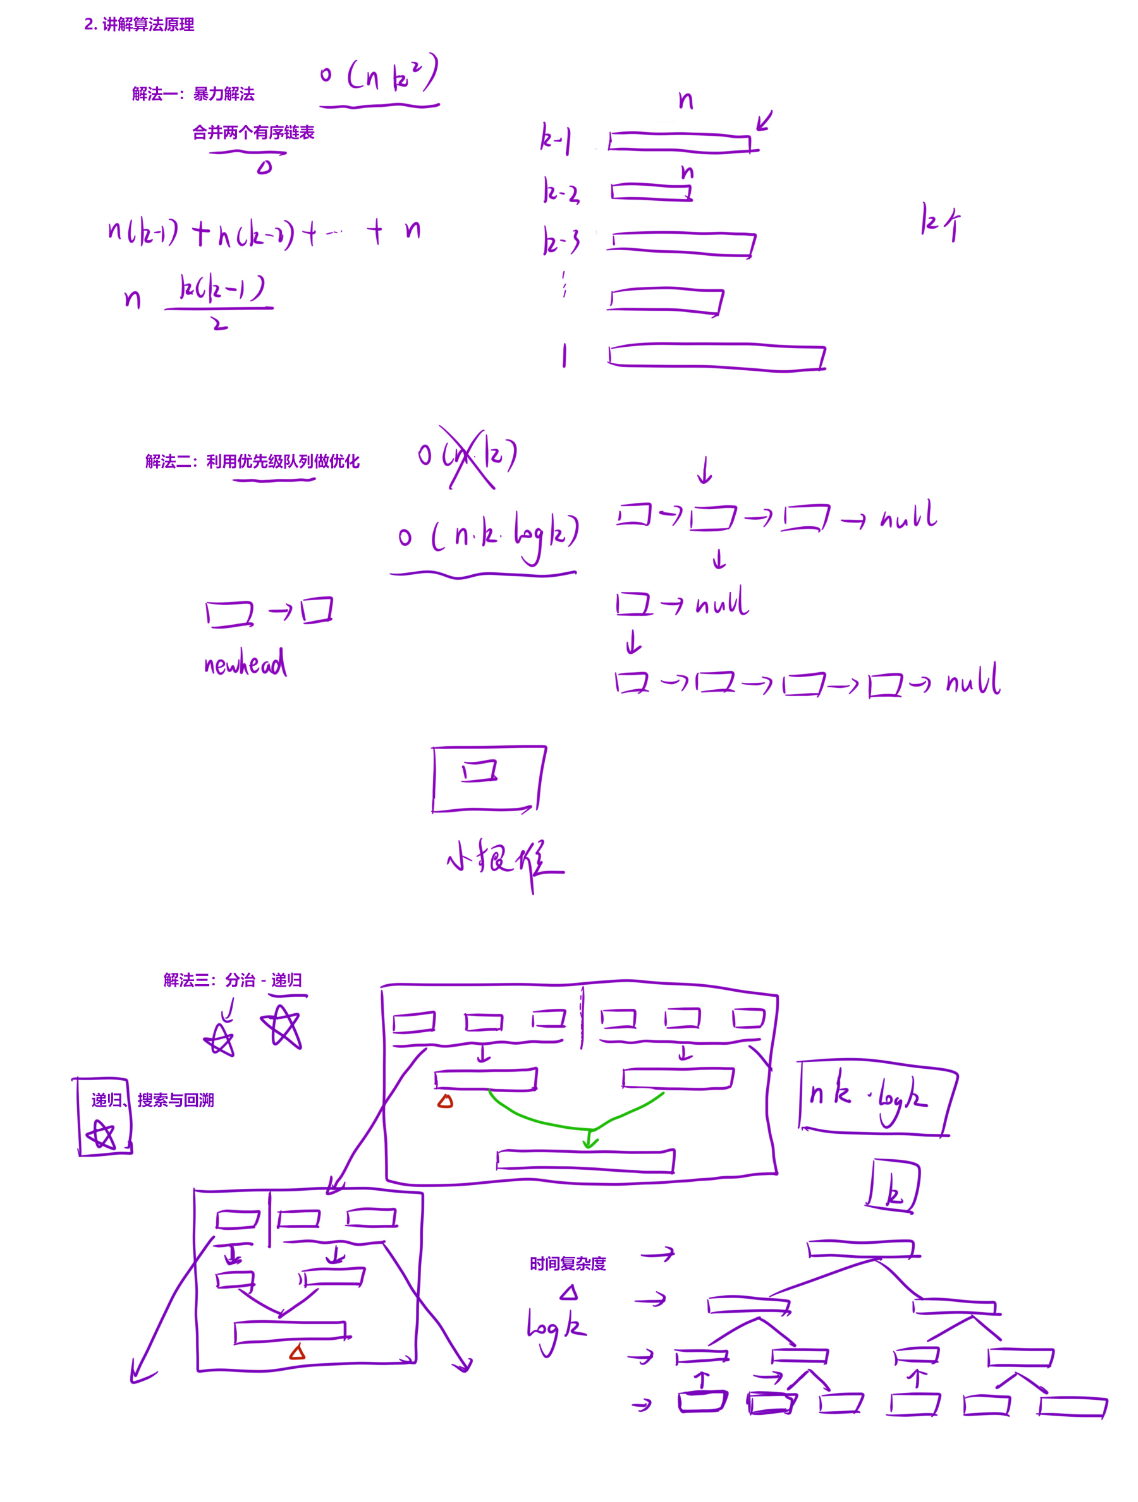 2. 讲解算法原理
解法一：暴力解法
o(nk²)
合并两个有序链表
n(k-1) + n(k-2) + ... + n
n k(k-1)
2
n
k-1
n
k-2
k-3
⋮
1
k个
解法二：利用优先级队列做优化
o(n·k)
o(n·k·logk)
newhead
null
null
null
小根堆
解法三：分治 - 递归
递归、搜索与回溯
nk·logk
k
时间复杂度
logk